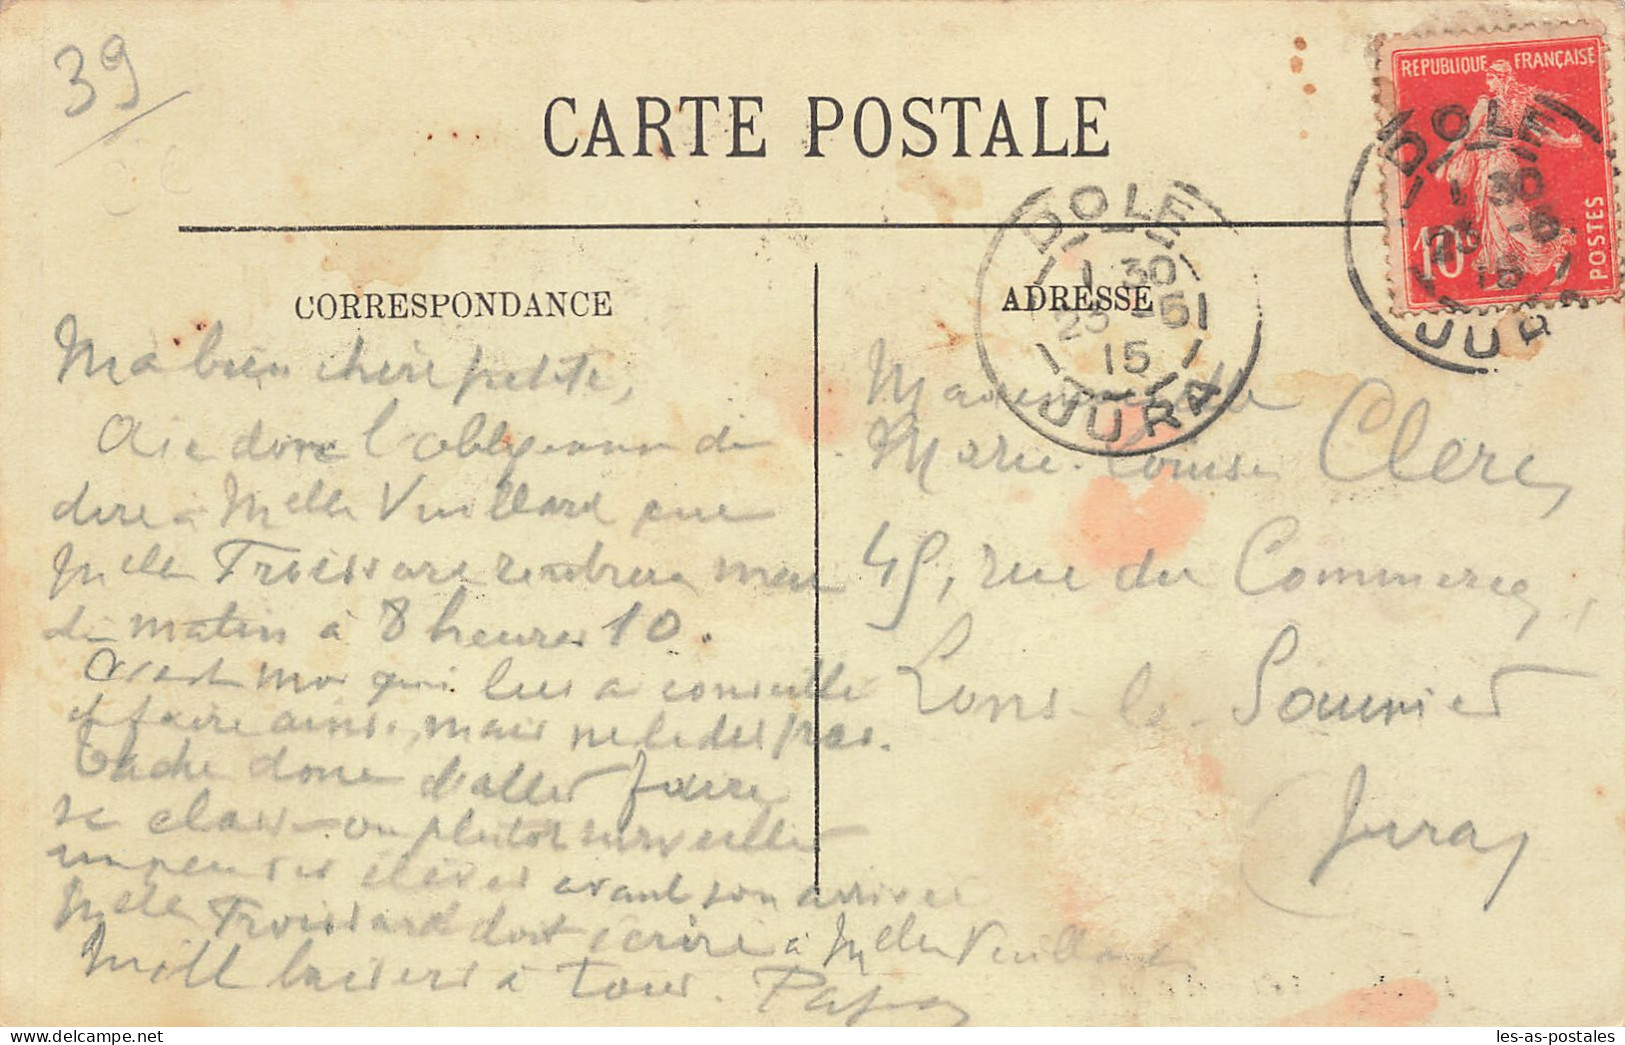 39
CARTE POSTALE
REPUBLIQUE FRANÇAISE
10
POSTES
DOLE
1 30
23 -5
15
JURA
DOLE
1 30
23 -5
15
JURA
CORRESPONDANCE
Ma bien chère petite,
Aie donc l'obligeance de
dire à Melle Vuillard que
Melle Froissard rentrera mar
di matin à 8 heures 10.
C'est moi qui lui a conseillé
de faire ainsi, mais ne le dis pas.
Tache donc d'aller faire
sa classe ou plutot surveiller
un peu ses élèves avant son arrivée
Melle Froissard doit écrire à Melle Vuillard
Mill baisers à tous. Papa
ADRESSE
Mademoiselle
Marie-Louise Clerc,
45, rue du Commerce,
Lons-le-Saunier
Jura,
les-as-postales